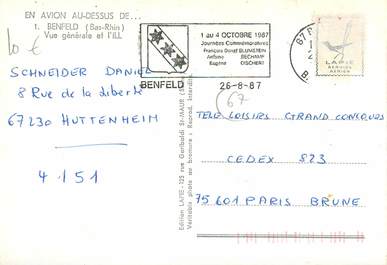 EN AVION AU-DESSUS DE...
1. BENFELD (Bas-Rhin)
Vue générale et l'ILL
10 €
BENFELD
1 au 4 OCTOBRE 1987
Journées Commémoratives
François Daniel BLUMSTEIN
Antoine BECHAMP
Eugène DISCHERT
26-8-87
67
B
LAPIE
SERVICE
AERIEN
SCHNEIDER DANIEL
8 Rue de la liberté
67230 HUTTENHEIM
4151
Edition LAPIE - 125 rue Garibaldi St-MAUR
Véritable photo au bromure - Reprod. interdite
TELE LOISIRS GRAND CONCOURS
CEDEX 823
75601 PARIS BRUNE